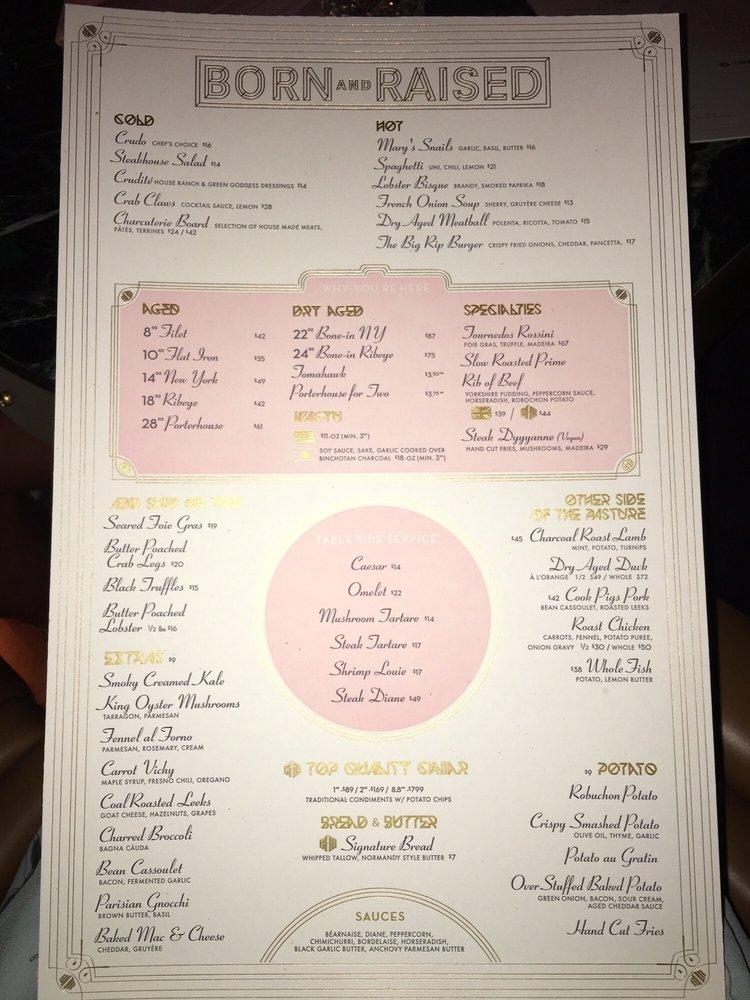 BORN AND RAISED
COLD
Crudo CHEF'S CHOICE $16
Steakhouse Salad $14
Crudité HOUSE RANCH & GREEN GODDESS DRESSINGS $14
Crab Claws COCKTAIL SAUCE, LEMON $28
Charcuterie Board SELECTION OF HOUSE MADE MEATS,
PÂTÉS, TERRINES $24 / $42
HOT
Mary's Snails GARLIC, BASIL, BUTTER $16
Spaghetti UNI, CHILI, LEMON $21
Lobster Bisque BRANDY, SMOKED PAPRIKA $18
French Onion Soup SHERRY, GRUYÈRE CHEESE $13
Dry Aged Meatball POLENTA, RICOTTA, TOMATO $15
The Big Rip Burger CRISPY FRIED ONIONS, CHEDDAR, PANCETTA, $17
WHY YOU'RE HERE
AGED
8oz Filet $42
10oz Flat Iron $35
14oz New York $49
18oz Ribeye $42
28oz Porterhouse $61
DRY AGED
22oz Bone-in NY $87
24oz Bone-in Ribeye $75
Tomahawk $3,50 oz
Porterhouse for Two $3,75 oz
WAGYU
$11-OZ (MIN. 3oz)
SOY SAUCE, SAKE, GARLIC COOKED OVER
BINCHOTAN CHARCOAL $18-OZ (MIN. 3oz)
SPECIALTIES
Tournedos Rossini
FOIE GRAS, TRUFFLE, MADEIRA $67
Slow Roasted Prime
Rib of Beef
YORKSHIRE PUDDING, PEPPERCORN SAUCE,
HORSERADISH, ROBOCHON POTATO
$39 / $44
Steak Dyyyanne (Vegan)
HAND CUT FRIES, MUSHROOMS, MADEIRA $29
ADD SURF OR TURF
Seared Foie Gras $19
Butter Poached
Crab Legs $20
Black Truffles $15
Butter Poached
Lobster 1/2 lbs $16
EXTRAS $9
Smoky Creamed Kale
King Oyster Mushrooms
TARRAGON, PARMESAN
Fennel al Forno
PARMESAN, ROSEMARY, CREAM
Carrot Vichy
MAPLE SYRUP, FRESNO CHILI, OREGANO
Coal Roasted Leeks
GOAT CHEESE, HAZELNUTS, GRAPES
Charred Broccoli
BAGNA CÀUDA
Bean Cassoulet
BACON, FERMENTED GARLIC
Parisian Gnocchi
BROWN BUTTER, BASIL
Baked Mac & Cheese
CHEDDAR, GRUYÈRE
TABLE SIDE SERVICE
Caesar $14
Omelet $22
Mushroom Tartare $14
Steak Tartare $17
Shrimp Louie $17
Steak Diane $49
TOP QUALITY CAVIAR
1oz $89 / 2oz $169 / 8.8oz $799
TRADITIONAL CONDIMENTS W/ POTATO CHIPS
BREAD & BUTTER
Signature Bread
WHIPPED TALLOW, NORMANDY STYLE BUTTER $7
SAUCES
BÉARNAISE, DIANE, PEPPERCORN,
CHIMICHURRI, BORDELAISE, HORSERADISH,
BLACK GARLIC BUTTER, ANCHOVY PARMESAN BUTTER
OTHER SIDE
OF THE PASTURE
$45 Charcoal Roast Lamb
MINT, POTATO, TURNIPS
Dry Aged Duck
À L'ORANGE 1/2 $49 / WHOLE $72
$42 Cook Pigs Pork
BEAN CASSOULET, ROASTED LEEKS
Roast Chicken
CARROTS, FENNEL, POTATO PUREE,
ONION GRAVY 1/2 $30 / WHOLE $50
$38 Whole Fish
POTATO, LEMON BUTTER
$9 POTATO
Robuchon Potato
Crispy Smashed Potato
OLIVE OIL, THYME, GARLIC
Potato au Gratin
Over Stuffed Baked Potato
GREEN ONION, BACON, SOUR CREAM,
AGED CHEDDAR SAUCE
Hand Cut Fries